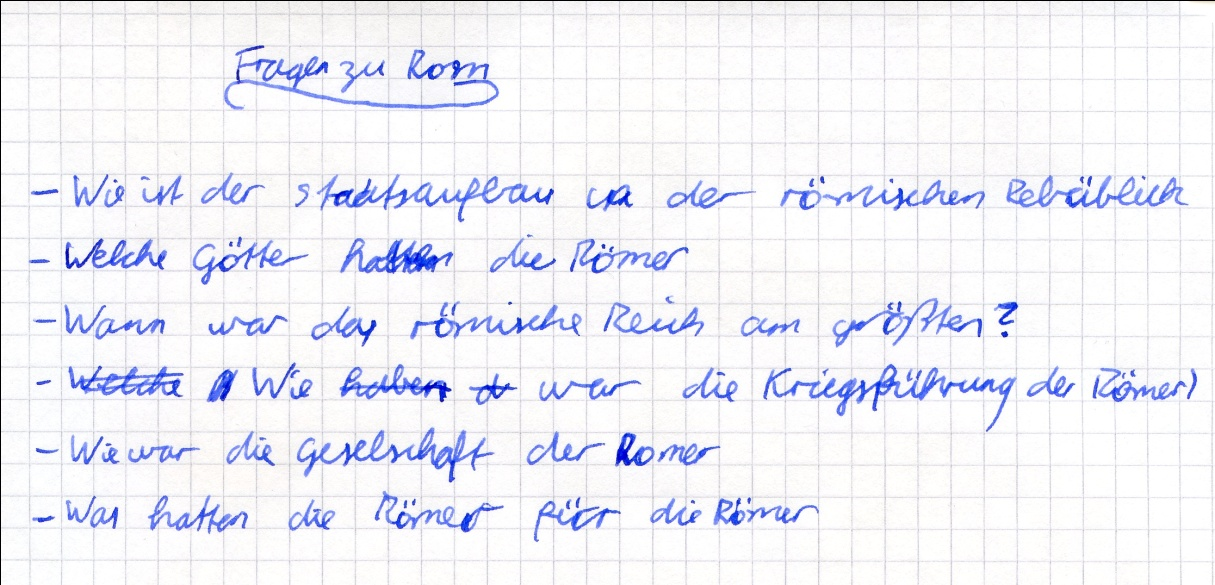 Fragen zu Rom
- Wie ist der staatsaufbau in der römischen Rebüblick
- Welche Götter hatten die Römer
- Wann war das römische Reich am größten?
- Welche Wie haben war die Kriegsführung der Römer)
- Wie war die geselschaft der Romer
- Was hatten die Römer für die Römer